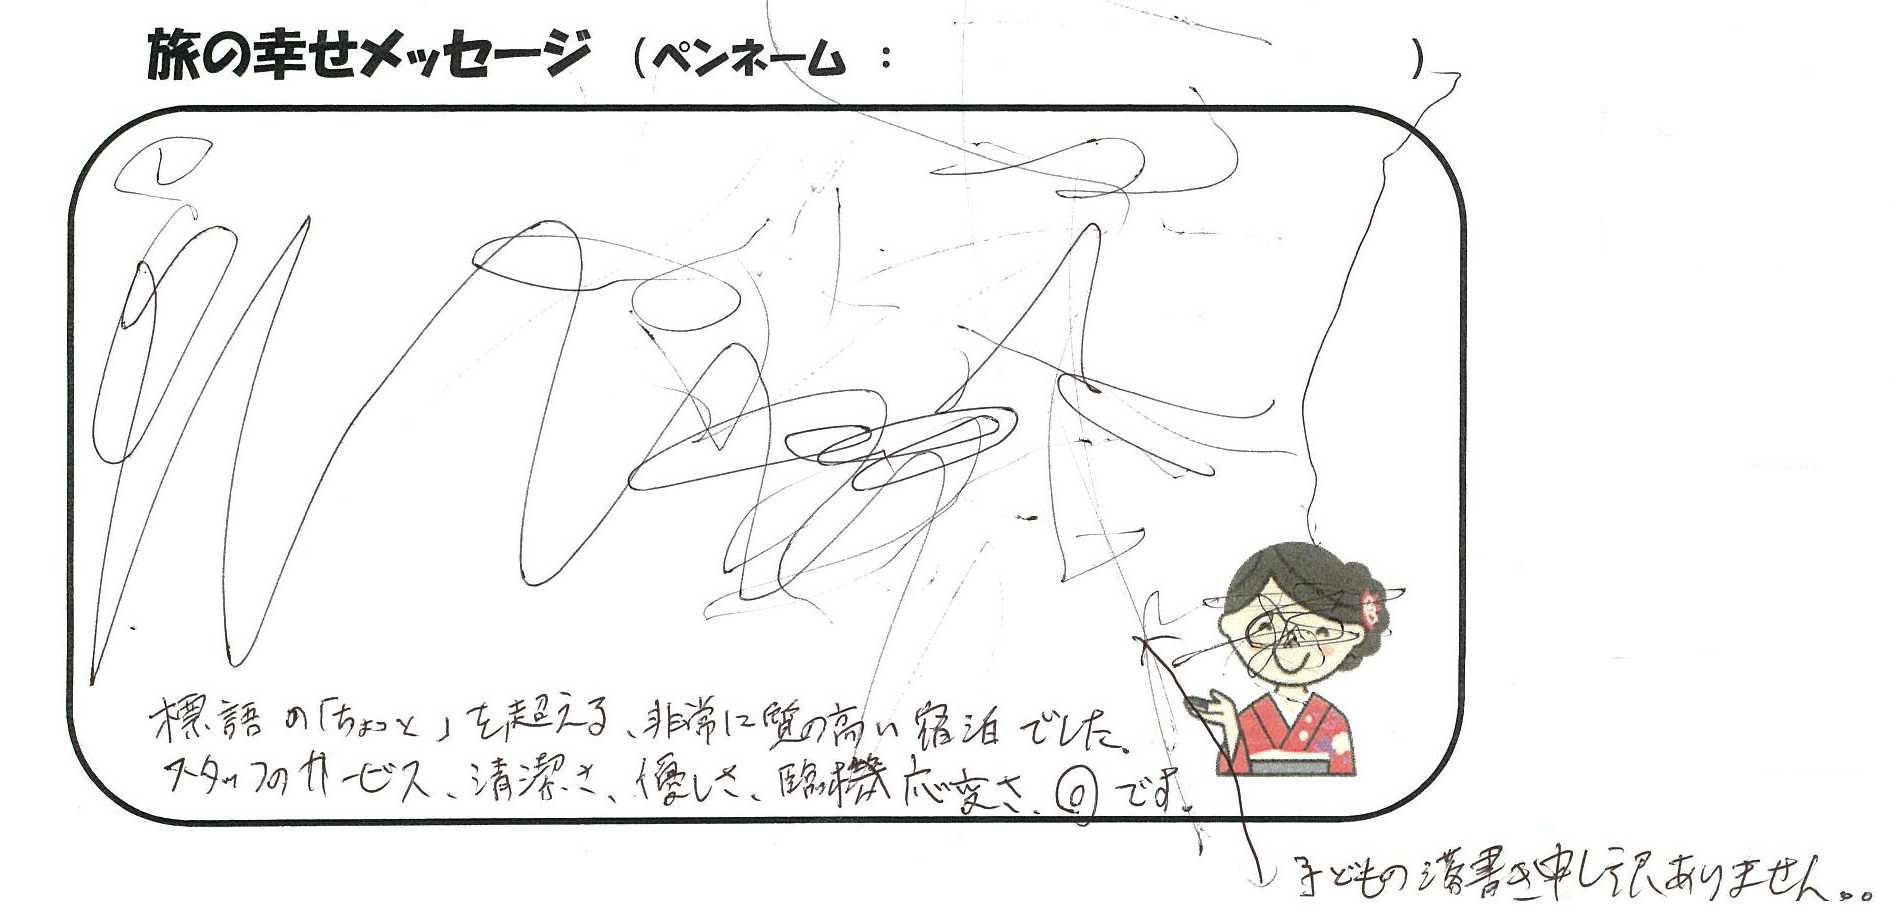 旅の幸せメッセージ (ペンネーム : )
標語の「ちょっと」を超える、非常に質の高い宿泊でした。
スタッフのサービス、清潔さ、優しさ、臨機応変さ、◎です。
子どもの落書き申し訳ありません。。